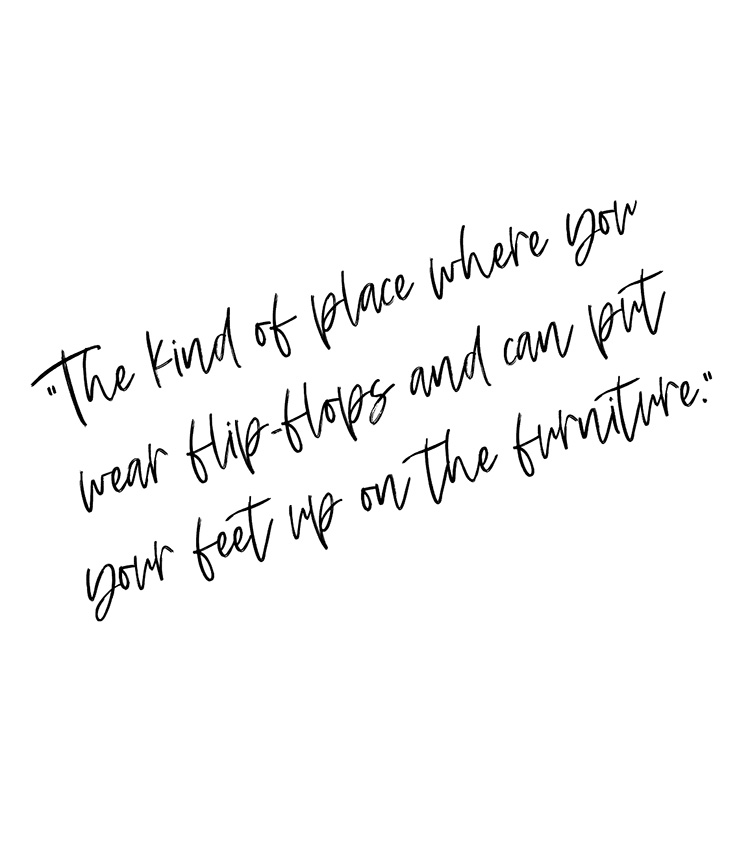 "The kind of place where you
wear flip-flops and can put
your feet up on the furniture."